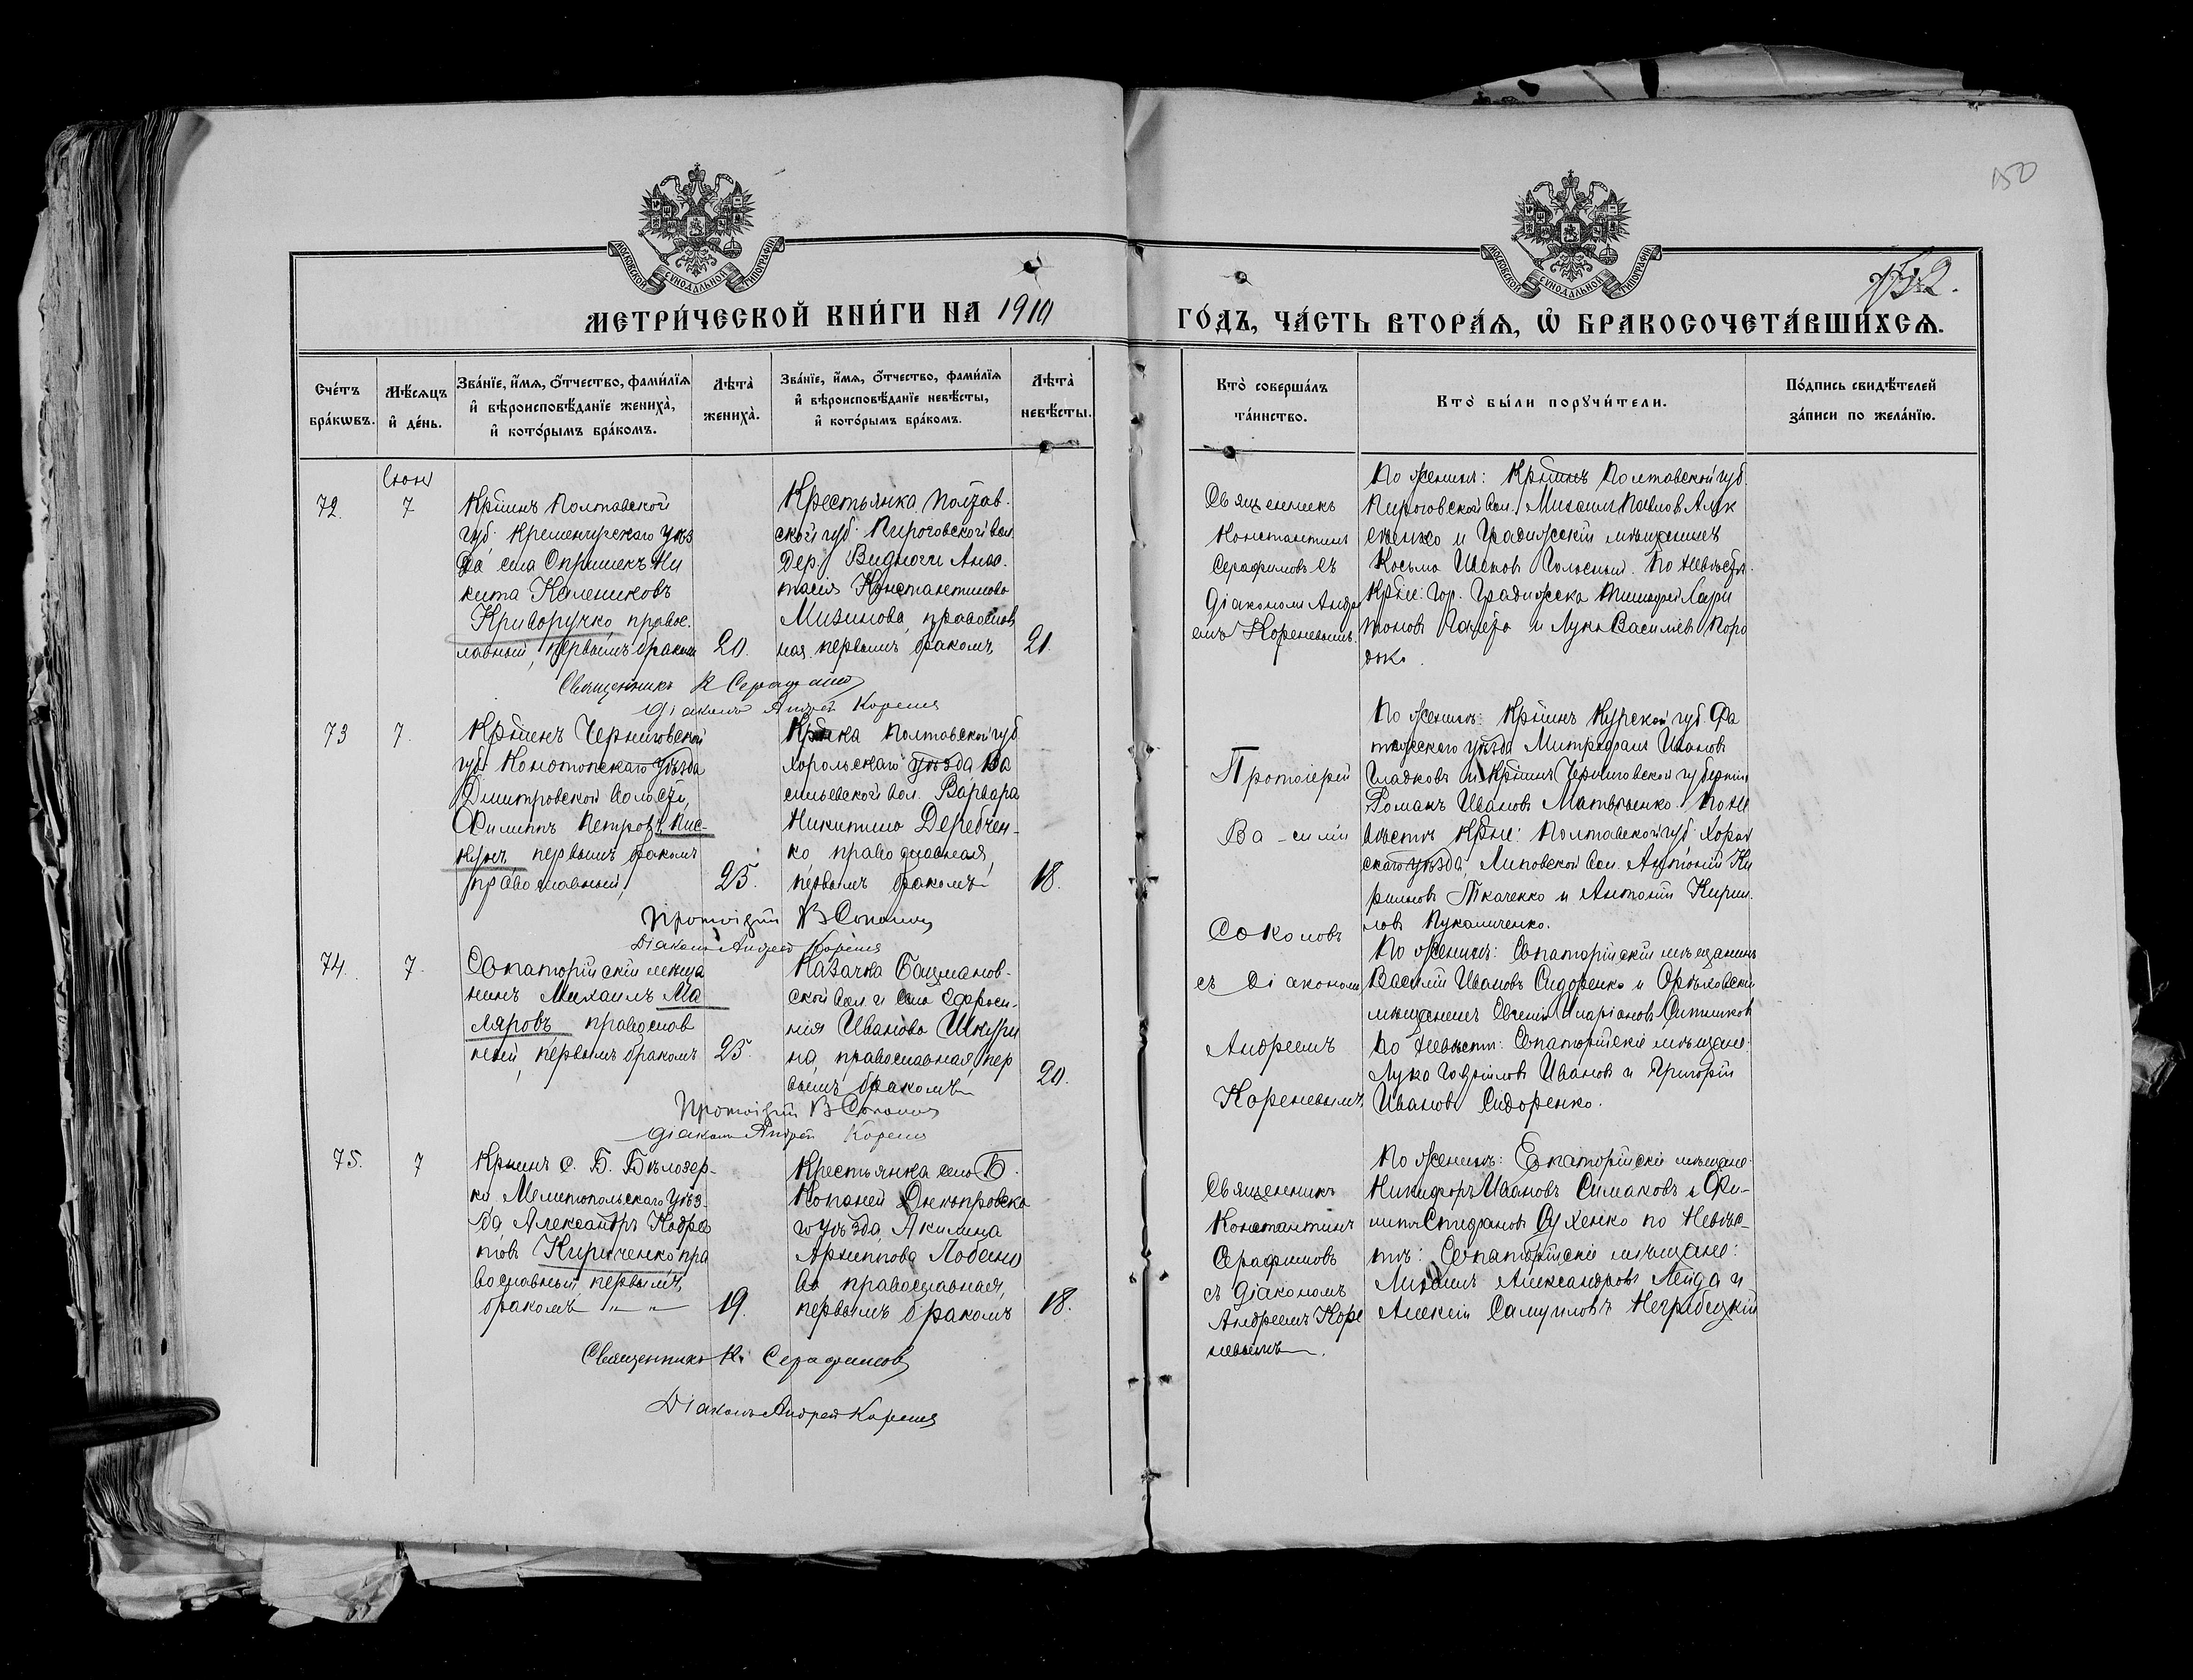 150
МОСКОВСКОЙ СѴНОДАЛЬНОЙ ТИПОГРАФІИ
МОСКОВСКОЙ СѴНОДАЛЬНОЙ ТИПОГРАФІИ
МЕТРИ́ЧЕСКОЙ КНИ́ГИ НА 1910
ГО́ДЪ, ЧА́СТЬ ВТОРА́Ѧ, Ѽ БРАКОСОЧЕТА́ВШИХСѦ.
Сче́тъ бра́кѡвъ.
Мѣ́сѧцъ и҆ де́нь.
Зва́нїе, и҆́мѧ, ѻ҆́тчество, фами́лїѧ
и҆ вѣроисповѣ́данїе жениха̀,
и҆ кото́рымъ бра́комъ.
Лѣта̀ жениха̀.
Зва́нїе, и҆́мѧ, ѻ҆́тчество, фами́лїѧ
и҆ вѣроисповѣ́данїе невѣ́сты,
и҆ кото́рымъ бра́комъ.
Лѣта̀ невѣ́сты.
Кто̀ соверша́лъ та́инство.
Кто̀ бы́ли порꙋчи́тели.
По́дпись свидѣ́телей за́писи по жела́нїю.
72.
7
Кр̃инъ Полтавской
губ. Кременчугскаго уѣз
да села Опришекъ Ни
кита Калениковъ
Криворучко правос.
лавный, первымъ бракомъ
20.
Крестьянка Полтав.
ской губ. Пироговской вол.
Дер. Анас.
тасія Константинова
Мизинова, православ
ная первымъ бракомъ
21.
Священникъ
Константинъ
Серафимовъ съ
діакономъ Андре
емъ Кореневымъ.
По женихѣ: Кр̃инъ Полтавской губ.
Пироговской вол. Михаилъ Павловъ Алек
сѣенко и Градижскій мѣщанинъ
Косьма По невѣстѣ:
Кр̃не: гор. Градижска Тимофей Лари
оновъ и Лука Васильевъ Поро
Священникъ К Серафимовъ
Діаконъ Андрей Кореневъ
73
7.
Кр̃инъ Черниговской
губ. Конотопскаго уѣзда
Дмитровской волости,
Филиппъ Петровъ Пис-
кунъ первымъ бракомъ
православный,
25.
Кр̃нка Полтавской губ
Хорольскаго уѣзда Ва
сильевской вол. Варвара
Никитина Деребчен-
ко, православная,
первымъ бракомъ
18.
Протоіерей
Ва-силій
Соколовъ
съ Діакономъ
Андреемъ
Кореневымъ
По женихѣ: Кр̃инъ Курской губ. Фа
тежскаго уѣзда Митрофанъ Ивановъ
Гладковъ и Кр̃инъ Черниговской губерніи
Романъ Ивановъ Матвѣенко. По не
вѣстѣ Кр̃не: Полтавской губ. Хороль
скаго уѣзда, Липовской вол. Антоній Ки
риловъ Ткаченко и Антоній Кирил.
ловъ Пукаличенко.
Протоіерей В Соколовъ
Діаконъ Андрей Кореневъ
74.
7.
Евпаторійскій мѣща
нинъ Михаилъ Ма
ляровъ православ
ный, первымъ бракомъ
25.
Казачка
ской вол. и села Ефроси-
нія Иванова Шкури
на, православная, пер
вымъ бракомъ
20.
По женихѣ: Евпаторійскій мѣщанинъ
Василій Ивановъ Сидоренко и Орѣховскій
мѣщанинъ Евгеній Иларіоновъ Ситниковъ
По невѣстѣ: Евпаторійскіе мѣщане:
Лука Гавриловъ Ивановъ и Григорій
Ивановъ Сидоренко.
Протоіерей В Соколовъ
Діаконъ Андрей Кореневъ
75.
7
Кр̃инъ с. Б. Бѣлозер-
ка Мелитопольскаго уѣз-
да Александръ Кодра
товъ Кириченко пра
вославный, первымъ
бракомъ
19.
Крестьянка села Б.
Копаней Днѣпровска
го уѣзда, Акилина
Архиппова Лобано
ва православная,
первымъ бракомъ
18.
Священникъ
Константинъ
Серафимовъ
съ діакономъ
Андреемъ Коре
невымъ.
По женихѣ: Евпаторійскіе мѣщане
Никифоръ Ивановъ Симаковъ и Фи-
липпъ Стефановъ Сухенко по невѣс-
тѣ: Евпаторійскіе мѣщане:
Михаилъ Александровъ Лейда и
Алексій Самуиловъ Неграбецкій
Священникъ К. Серафимовъ
Діаконъ Андрей Кореневъ